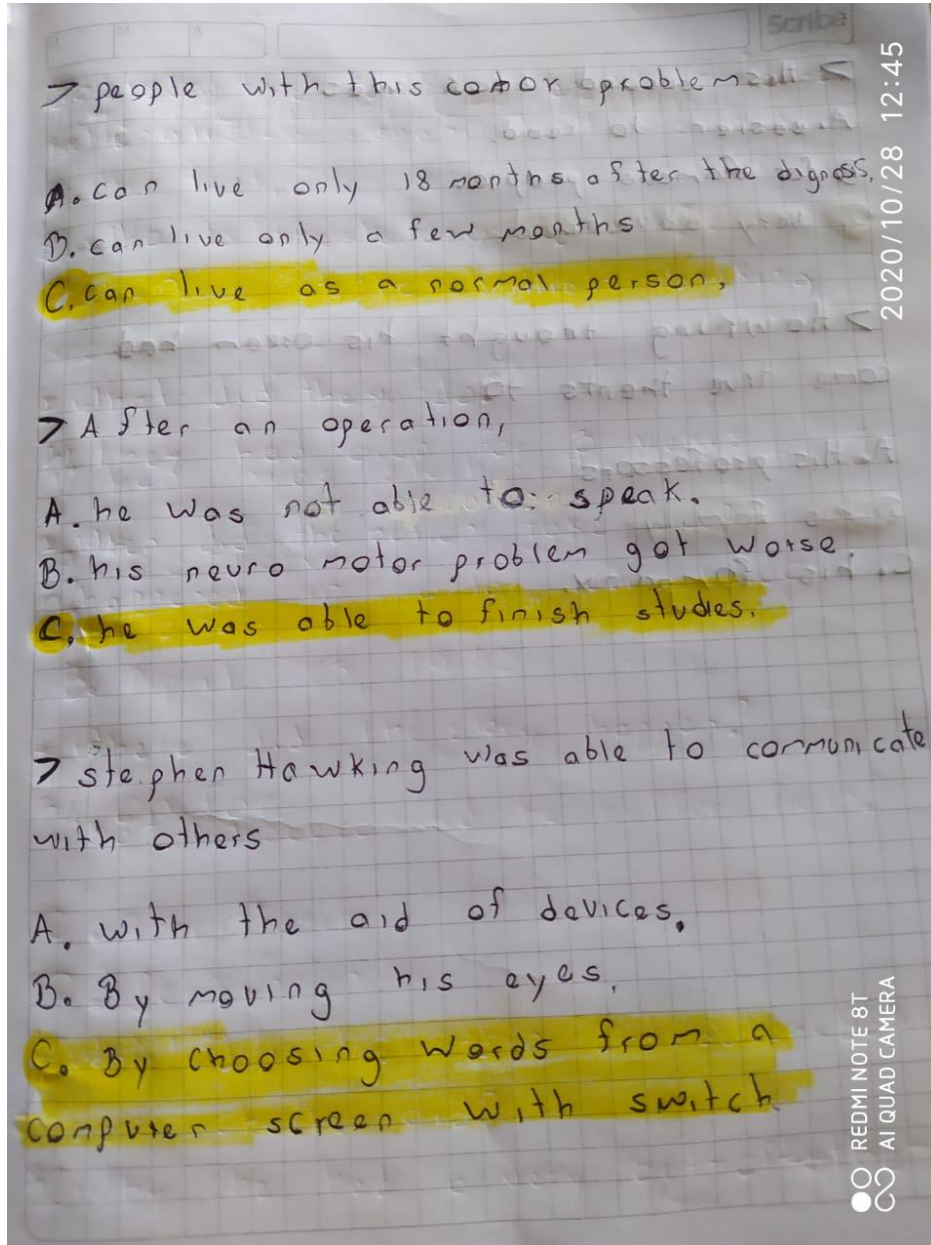 Scribe
> people with this problem
A. can live only 18 months after the dignosis.
B. can live only a few months
C. can live as a normal person,
> After an operation,
A. he was not able to speak.
B. his neuro motor problem got worse.
C. he was able to finish studies.
> stephen Hawking was able to communicate
with others
A. with the aid of devices.
B. By moving his eyes.
C. By choosing words from a
computer screen with switch
2020/10/28 12:45
REDMI NOTE 8T
AI QUAD CAMERA